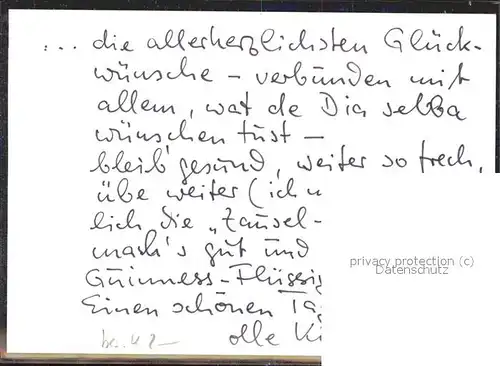 ... die allerherzlichsten Glück-
wünsche – verbunden mit
allem, wat de Dia selba
wünschen tust –
bleib' gesund, weiter so frech,
übe weiter (ich
lich die „Zausel-
mach's gut und
Guinness-Flüssig
Einen schönen Tag
olle Ki
privacy protection (c)
Datenschutz